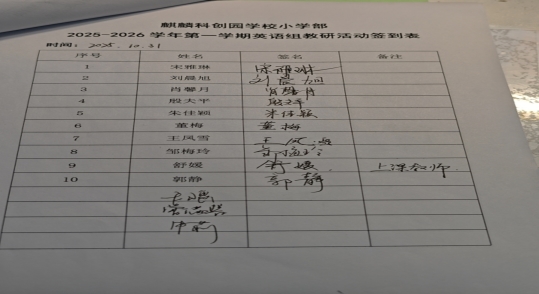 麒麟科创园学校小学部
2025-2026 学年第一学期英语组教研活动签到表
时间：2025.10.31
序号 姓名 签名 备注
1 宋雅琳 宋雅琳
2 刘晨旭 刘晨旭
3 肖馨月 肖馨月
4 殷大平 殷大平
5 朱佳颖 朱佳颖
6 董梅 董梅
7 王凤雪 王凤雪
8 邹梅玲 邹梅玲
9 舒媛 舒媛 上课老师
10 郭静 郭静
申莉